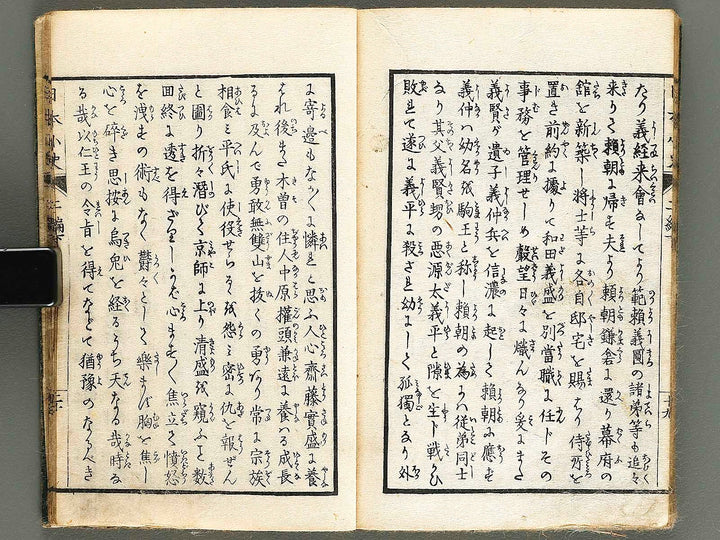 たり義経来會してより範頼義圓の諸弟等も追々
来りく頼朝に帰も夫より頼朝鎌倉に還り幕府の
舘を新築し将士等に各自邸宅を賜ちり侍所を
置き前約に據りて和田義盛を別當職に任トその
事務を管理せしめ聲望日々に熾んなり爰にまた
義賢が遺子義仲兵を信濃に起しく頼朝に應も
義仲ハ幼名を駒王と称し頼朝の為にハ従弟同士
なり其父義賢甥の悪源太義平と隙を生ト戦ひ
敗れて遂に義平に殺さる幼にしく孤獨となり外
に寄邊もなかくに憐れと思ふ人心齋藤實盛に養
はれ後また木曽の住人中原權頭兼遠に養ハる成長
るに及んで勇敢無雙山を抜くの勇なり常に宗族
相食ミ平氏に使役せらるを怨ミ密に仇を報ぜん
と圖り折々潜びく京師に上り清盛を窺ふと数
回終に透を得ざりしかバ心ませく焦立ち憤怒
を洩もの術もなく欝々としく樂まば胸を焦し
心を碎き思按に烏兎を經るうち天なる哉時な
る哉以仁王の令旨を得てなどて猶豫のなるべき